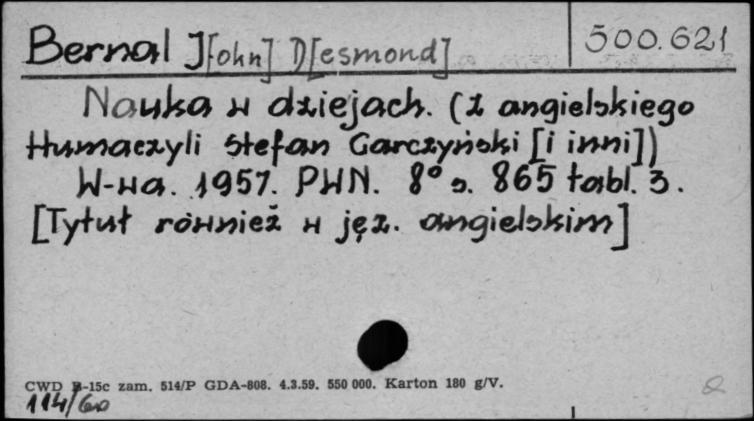 Bernal J[ohn] D[esmond] 500.621
Nauka w dziejach. (z angielskiego
tłumaczyli Stefan Garczyński [i inni])
W-wa. 1957. PWN. 8° s. 865 tabl. 3.
[Tytuł również w jęz. angielskim]
CWD B-15c zam. 514/P GDA-808. 4.3.59. 550 000. Karton 180 g/V.
114/60